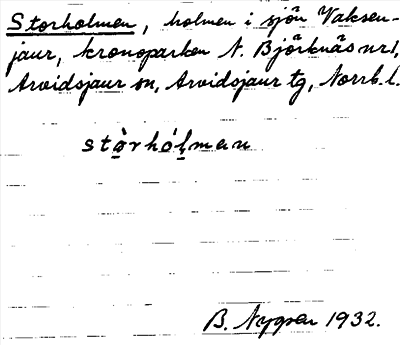 Storholmen, holmen i sjön Vaksen-
jaur, kronoparken N. Björknäs nr 1,
Arvidsjaur sn, Arvidsjaur tg, Norrb. l.
stò̱rhó̱l̥man
B. Nygren 1932.